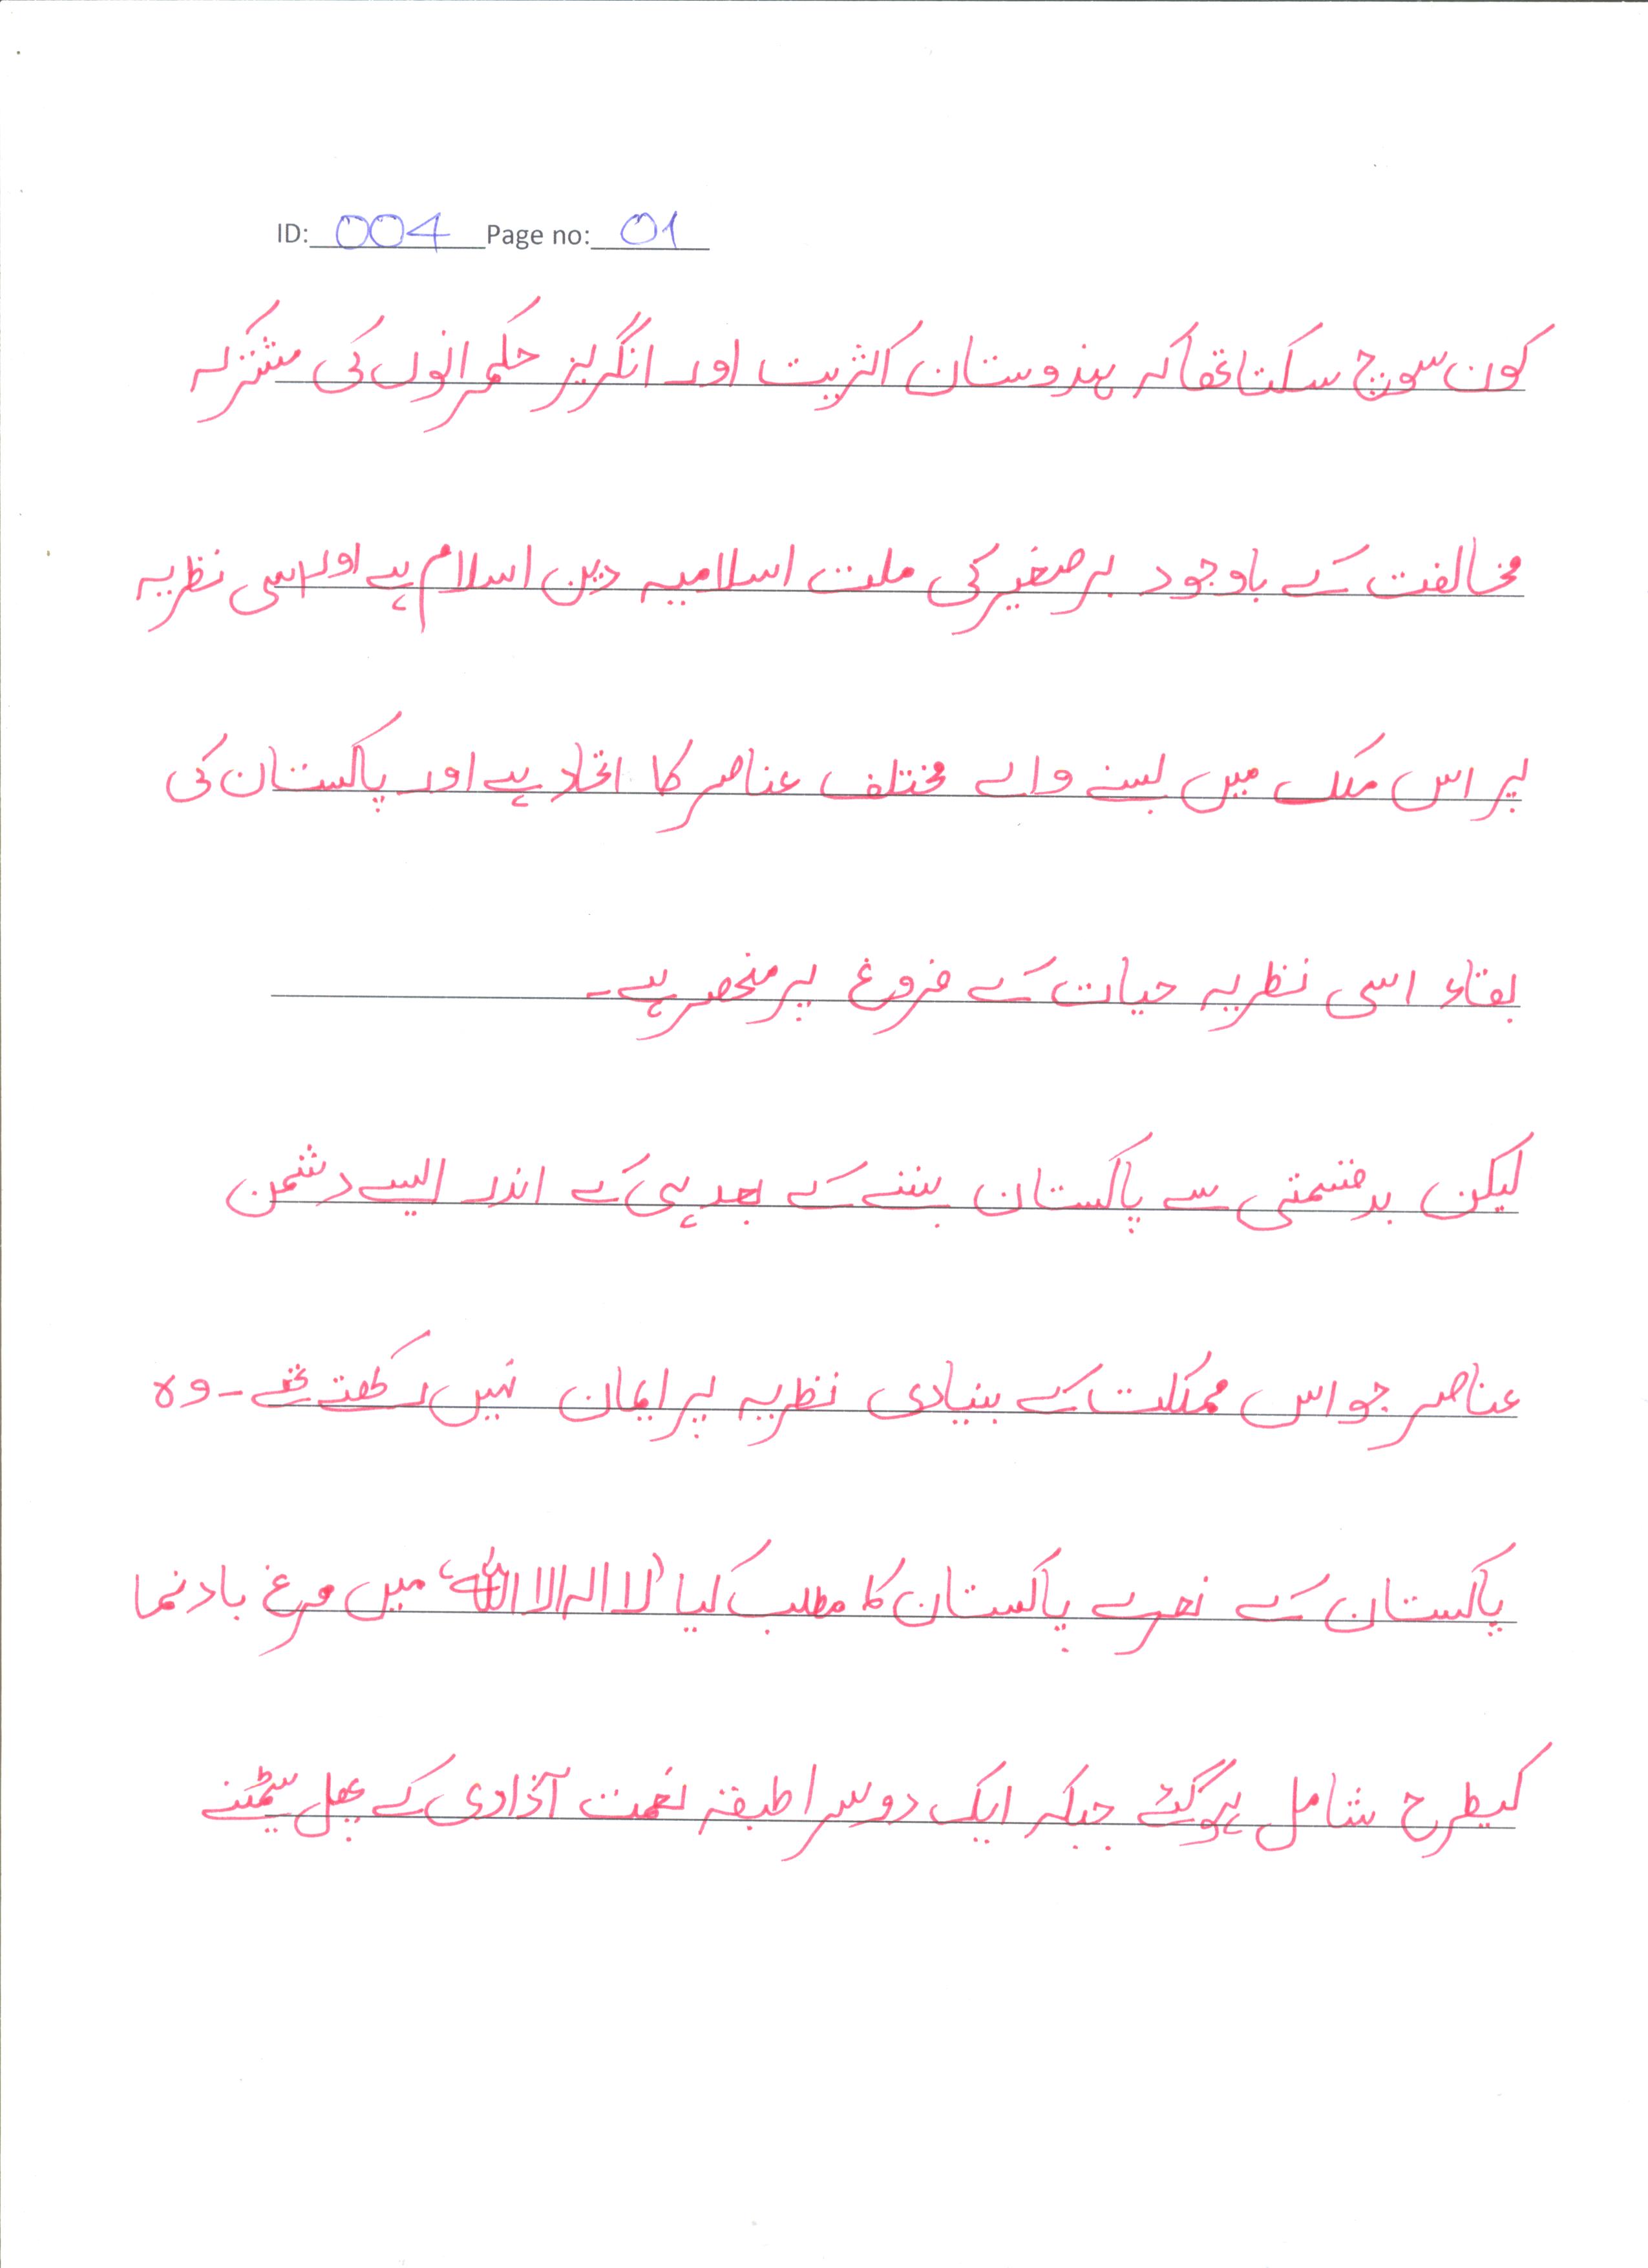 ID: 004 Page no: 01
کون سوچ سکتا تھا کہ ہندوستان اکثریت اور انگریز حکمرانوں کی مشترکہ
مخالفت کے باوجود برصغیر کی ملت اسلامیہ دین اسلام ہے اور اسی نظریہ
پر اس ملک میں بسنے والے مختلف عناصر کا اتحاد ہے اور پاکستان کی
بقاء اسی نظریہ حیات کے فروغ پر منحصر ہے۔
لیکن بدقسمتی سے پاکستان بننے کے بعد ہی کے اندر ایسے دشمن
عناصر جو اس مملکت کے بنیادی نظریہ پر ایمان نہیں رکھتے تھے۔ وہ
پاکستان کے نعرے پاکستان کا مطلب کیا ‘لا الہ الا اللہ‘ میں مرغ باد نما
کیطرح شامل ہوگئے جبکہ ایک دوسرا طبقہ نعمت آزادی کے پھل سمیٹنے